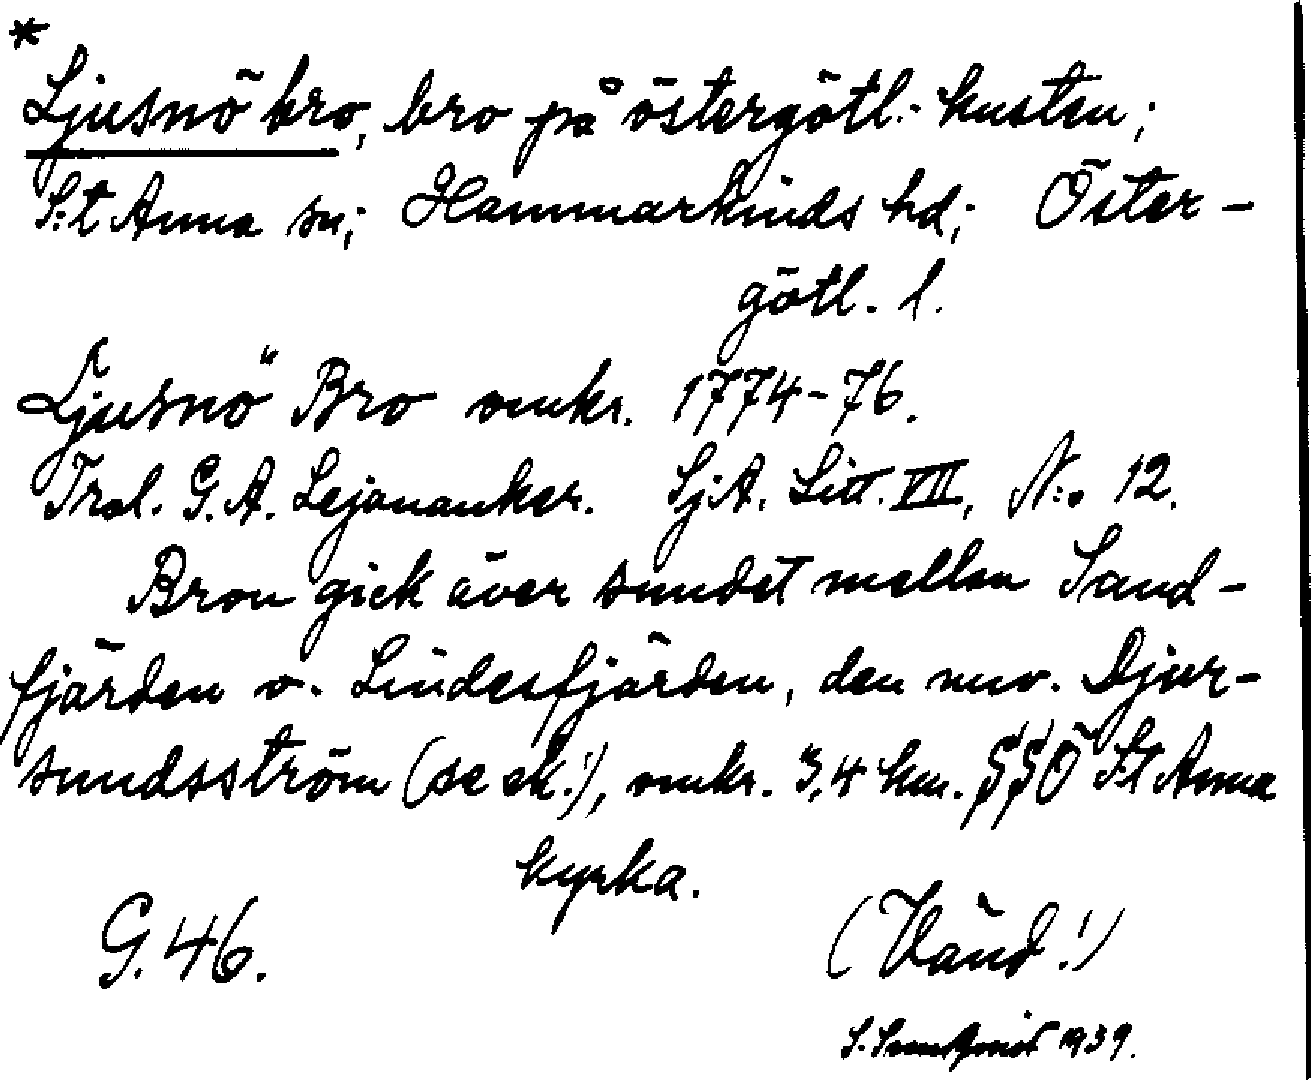 *
Ljusnö bro, bro på östergötl. kusten;
S:t Anna sn; Hammarkinds hd; Öster-
götl. l.
Ljusnö Bro omkr. 1774-76.
Trol. G. A. Lejonanker. Sj.A. Litt. VII, N:o 12.
Bron gick över sundet mellan Sand-
fjärden o. Lindesfjärden, den nuv. Djur-
sundsström (se ek.!), omkr. 3,4 km. SSÖ S:t Anna
kyrka.
G. 46. (Vänd!)
1939.